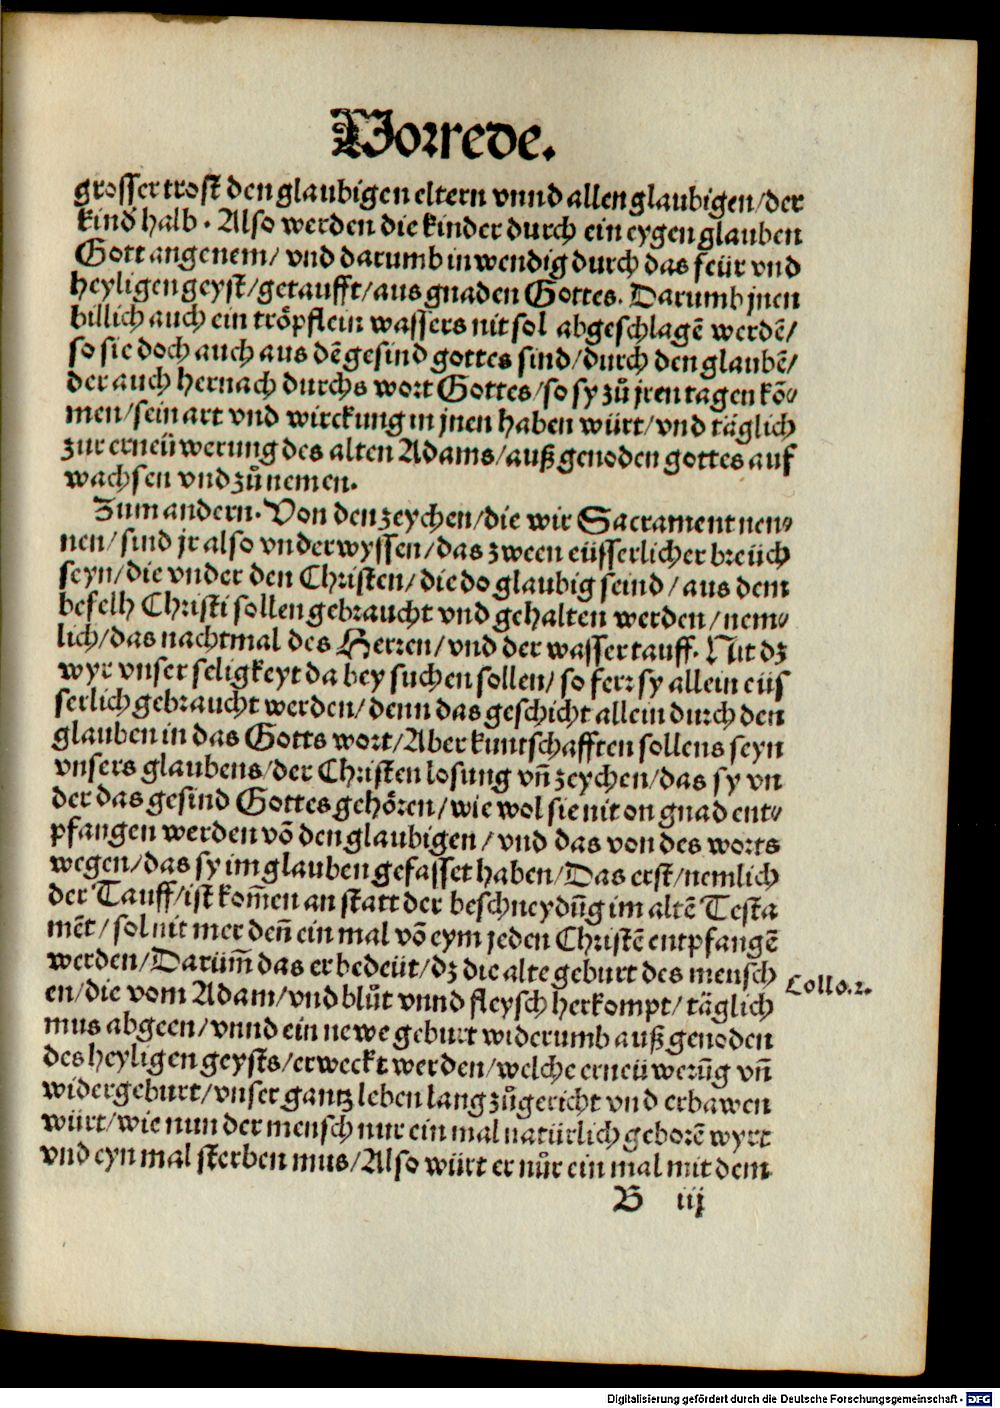 Vorrede.
grosser trost den glaubigen eltern vnnd allen glaubigen/der
kind halb. Also werden die kinder durch ein eygen glauben
Gott angenem/ vnd darumb inwendig durch das feür vnd
heyligen geyst/getaufft/aus gnaden Gottes. Darumb jnen
billich auch ein tröpflein wassers nit sol abgeschlagē werdē/
so sie doch auch aus dē gesind gottes sind/durch den glaubē/
der auch hernach durchs wort Gottes/so sy zů jren tagen kō⸗
men/sein art vnd wirckung in jnen haben würt/vnd täglich
zur erneüwerung des alten Adams/auß genoden gottes auf
wachsen vnd zůnemen.
Zum andern. Von den zeychen/die wir Sacrament nen⸗
nen/sind jr also vnderwyssen/das zween eüsserlicher breüch
seyn/die vnder den Christen/die do glaubig seind/aus dem
befelh Christi sollen gebraucht vnd gehalten werden/nem⸗
lich/das nachtmal des Herren/vnd der wassertauff. Nit dz
wyr vnser seligkeyt da bey suchen sollen/so ferr sy allein eüs
serlich gebraucht werden/denn das geschicht allein durch den
glauben in das Gotts wort/Aber kuntschafften sollens seyn
vnsers glaubens/der Christen losung vn̄ zeychen/das sy vn
der das gesind Gottes gehören/wie wol sie nit on gnad ent⸗
pfangen werden vō den glaubigen/ vnd das von des worts
wegen/das sy im glauben gefasset haben/Das erst/nemlich
der Tauff/ist kom̄en an statt der beschneydūg im altē Testa
mēt/sol nit mer den̄ ein mal vō eym jeden Christē entpfangē
werden/Darum̄ das er bedeüt/dz die alte geburt des mensch
en/die vom Adam/vnd blůt vnnd fleysch herkompt/täglich
Collo.2.
mus abgeen/vnnd ein newe geburt widerumb auß genoden
des heyligen geysts/erweckt werden/welche erneüwerūg vn̄
widergeburt/vnser gantz leben lang zůgericht vnd erbawen
würt/wie nun der mensch nur ein mal natürlich geborē wyrt
vnd eyn mal sterben mus/Also würt er nůr ein mal mit dem
B iij
Digitalisierung gefördert durch die Deutsche Forschungsgemeinschaft - DFG